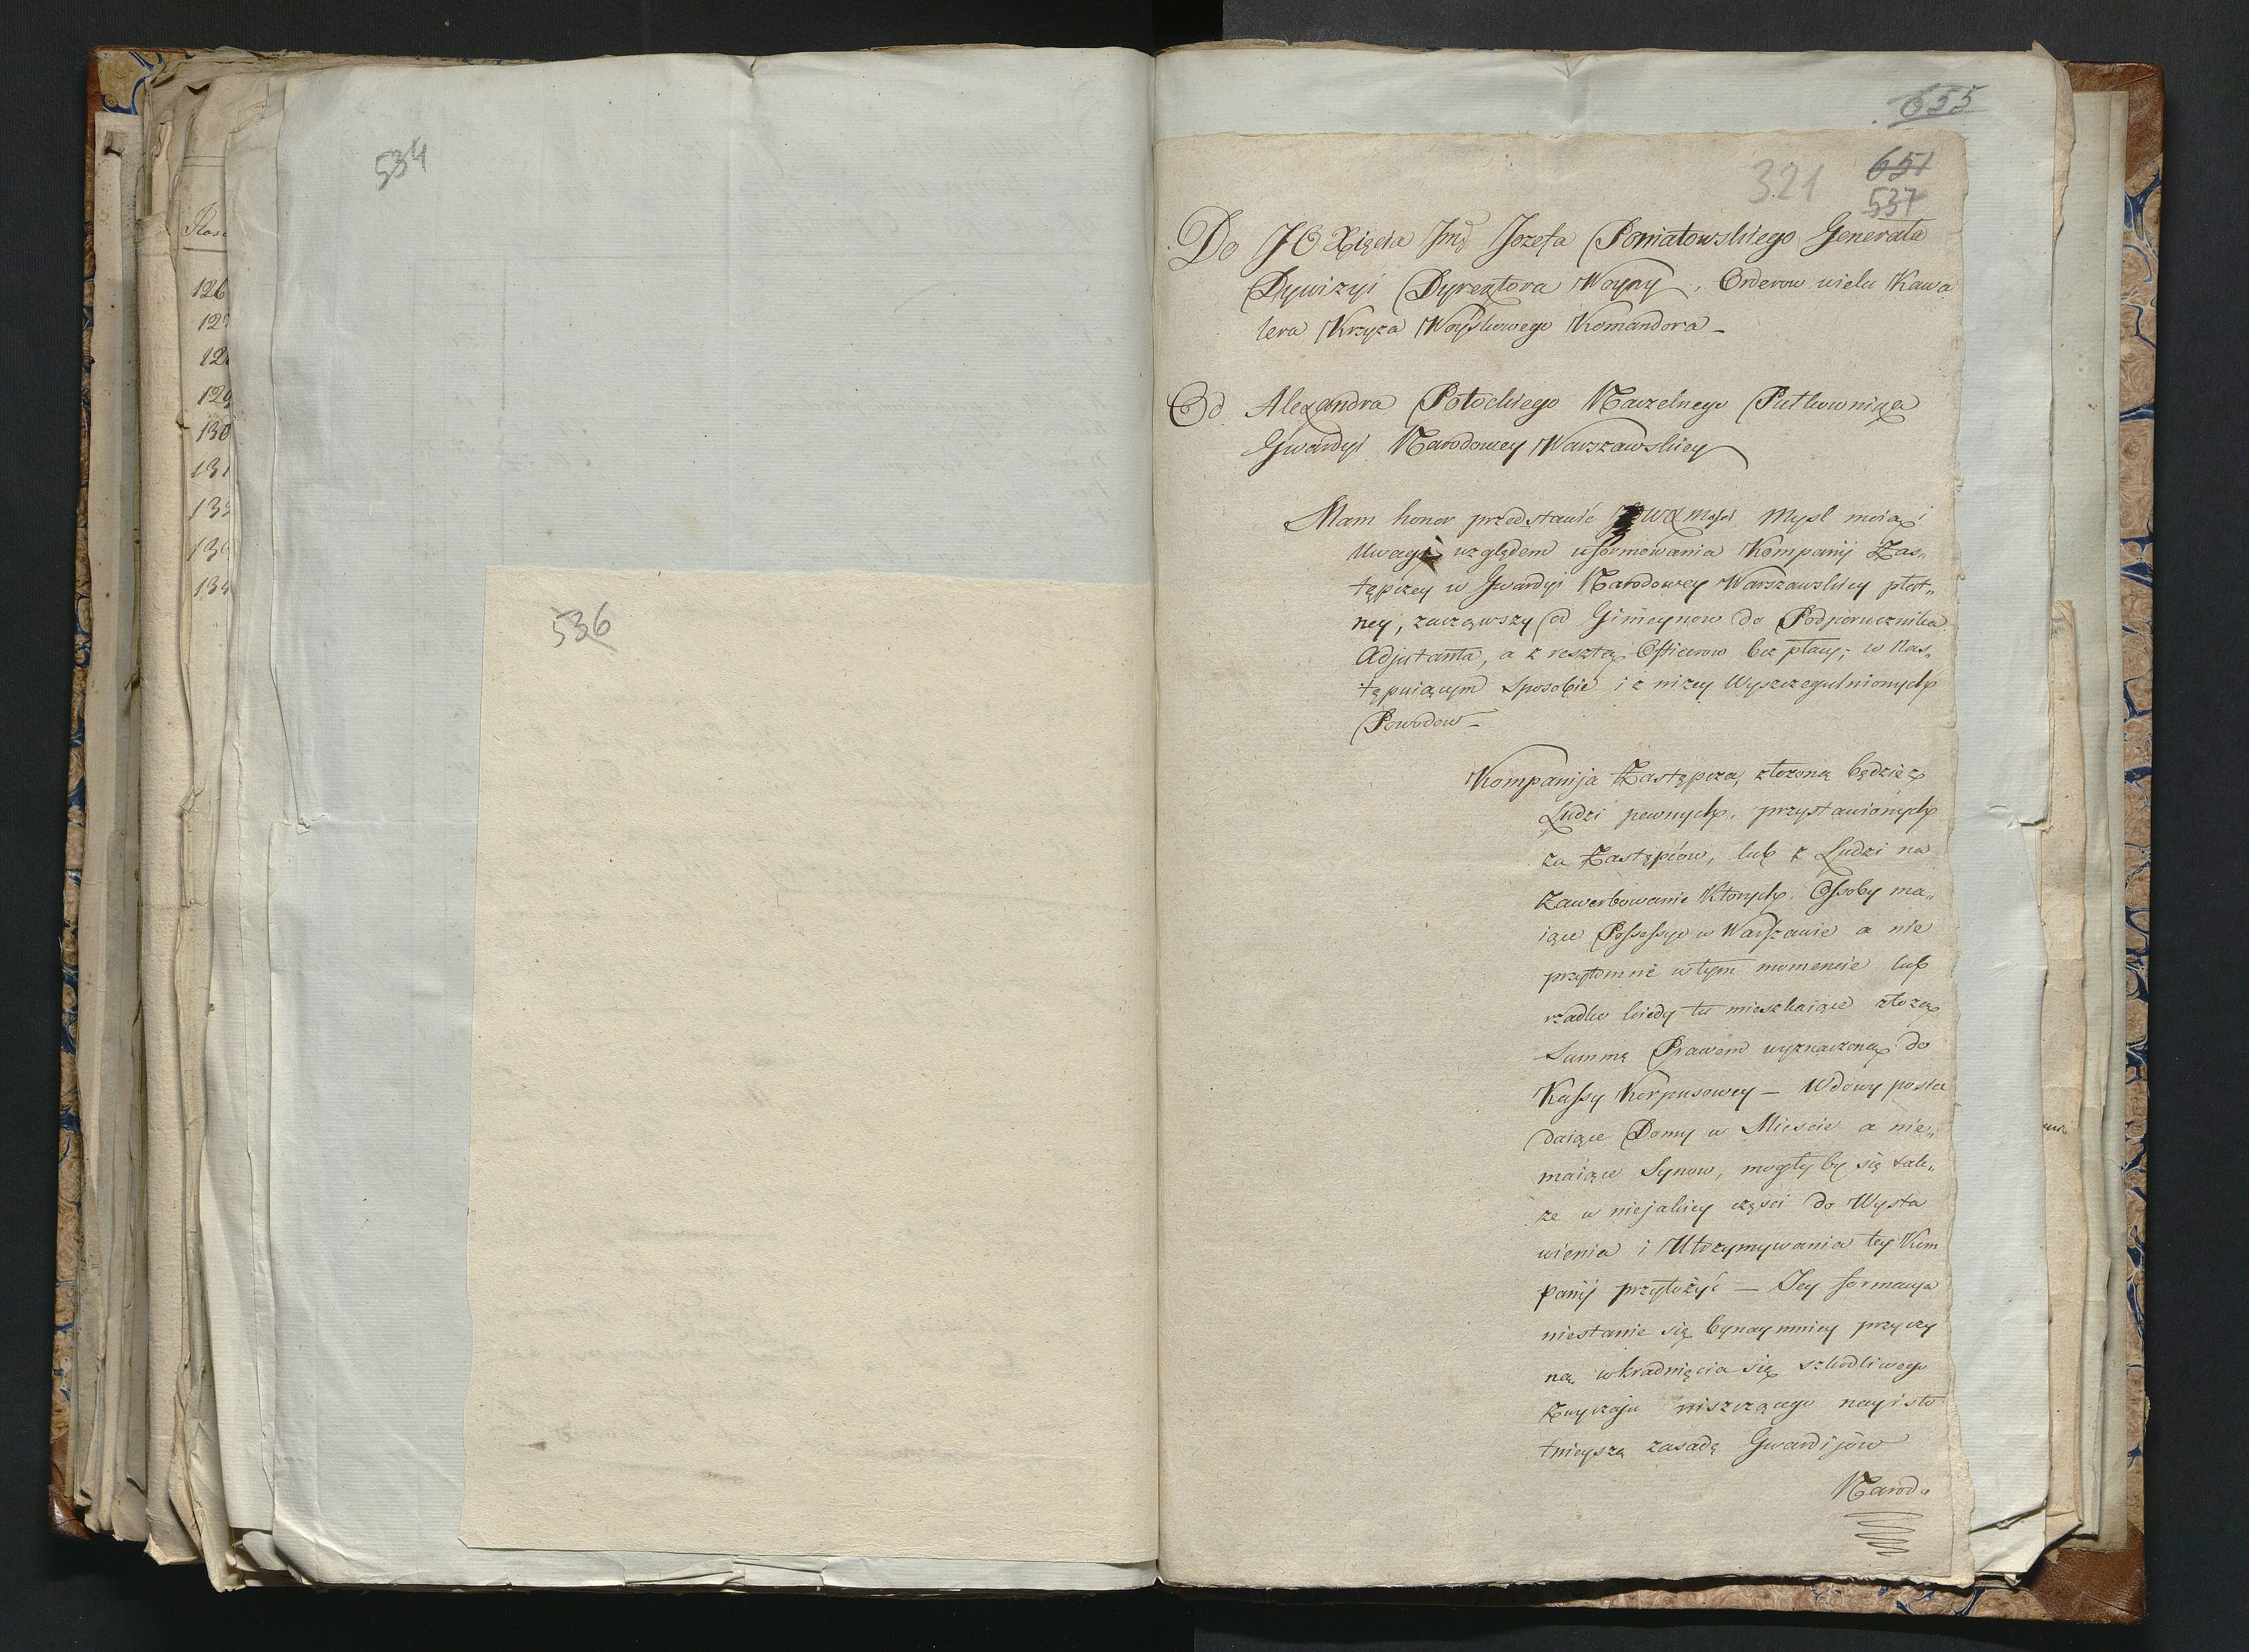 534
536
Rose
126
127
12
129
130
131
13
13
13
655
321
651
537
Do JO Xięcia Jmć Jozefa Poniatowskiego Generała
Dywizyi Dyrektora Woyny, Orderow wielu Kawa
lera Krzyża Woyskowego Komandora _
Od Alexandra Potockiego Naczelnego Pułkownika
Gwardyi Narodowey Warszawskiey
Mam honor przedstawić Mysl moią i
Uwagi względem uformowania Kompanij Zas„
tępczey w Gwardyi Narodowey Warszawskiey płat„
ney, zacząwszy od Gimeynow do Podporucznika
Adjutanta, a z resztą Officerow bez płacy; w Nas„
tępuiącym sposobie i z niżey Wyszczegulnionych
Powodow _
Kompanija Zastępcza, złożoną będzie z
Ludzi pewnych, przystawionych
za Zastępców, lub z Ludzi na
Zawerbowanie Ktorych. Ossoby ma„
iące Possessye w Warszawie a nie
przytomne w tym momencie lub
rzadko kiedy tu mieszkaiące złożą
Summę Prawem wyznaczoną do
Kassy Korpusowey — Wdowy posia
daiące Domy w Miescie a nie„
maiące Synow, mogły by się tak„
że w niejakiey częsci do Wysta
wienia i Utrzymywania tey Kom
panij przyłożyć — Jey formacya
niestanie się bynaymniey przyczy
ną wkradnięcia się szkodliwego
Zwyczaju niszczącego nayisto
tnieyszą zasadę Gwardijów
Narodo